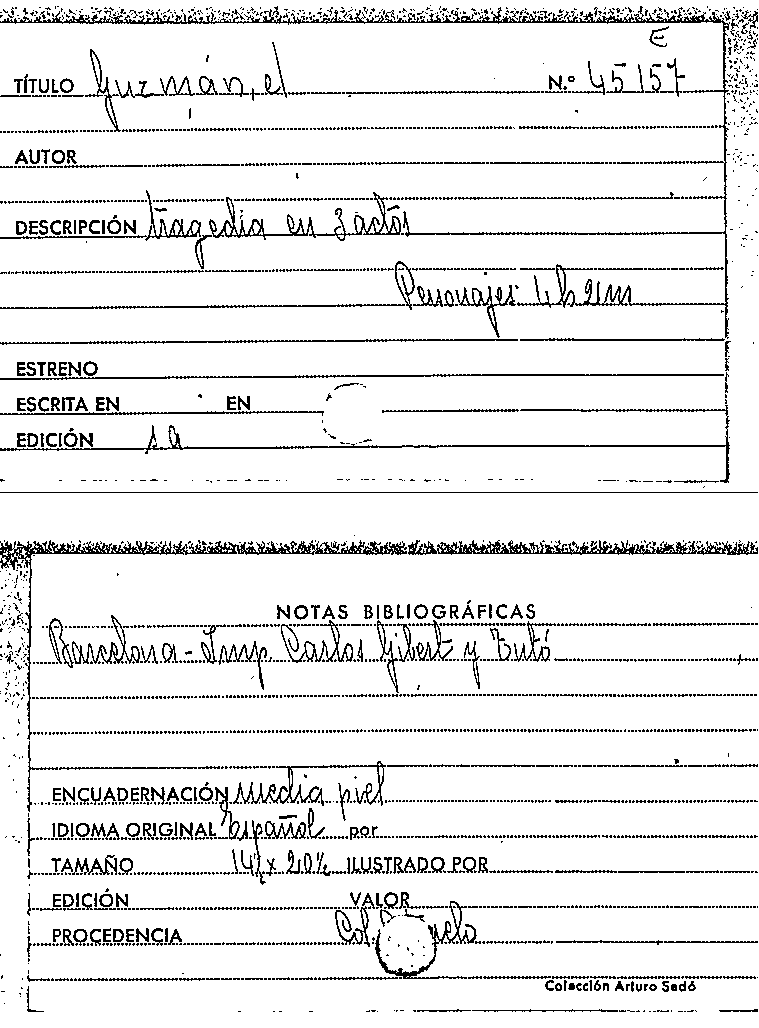 E
TÍTULO Guzmán, el N.º 45157
AUTOR
DESCRIPCIÓN tragedia en 3 actos
Personajes: 4h 21m
ESTRENO
ESCRITA EN EN
EDICIÓN s.a
NOTAS BIBLIOGRÁFICAS
Barcelona - Imp. Carlos Gibert y Tutó
ENCUADERNACIÓN media piel
IDIOMA ORIGINAL Español por
TAMAÑO 14½ x 20½ ILUSTRADO POR
EDICIÓN VALOR
PROCEDENCIA Col.
Colección Arturo Sedó